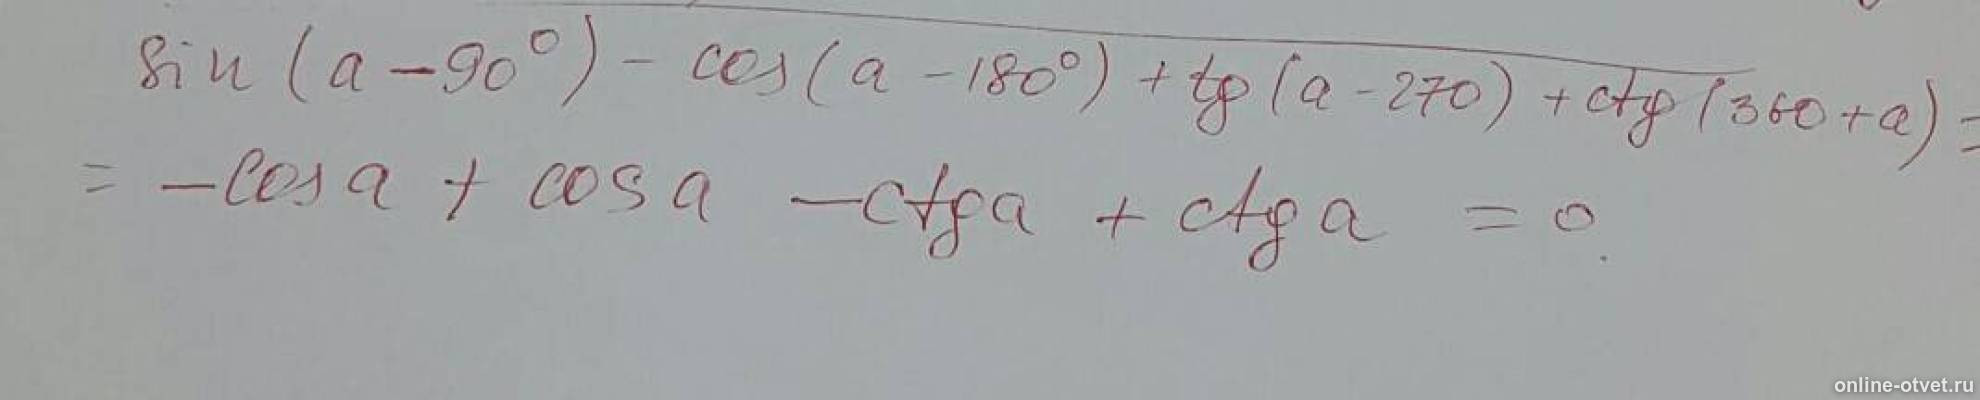 sin(a-90°)- cos(a-180°)+tg(a-270)+ctg(360+a)=
= -cos a + cos a -ctga + ctg a = 0.
online-otvet.ru